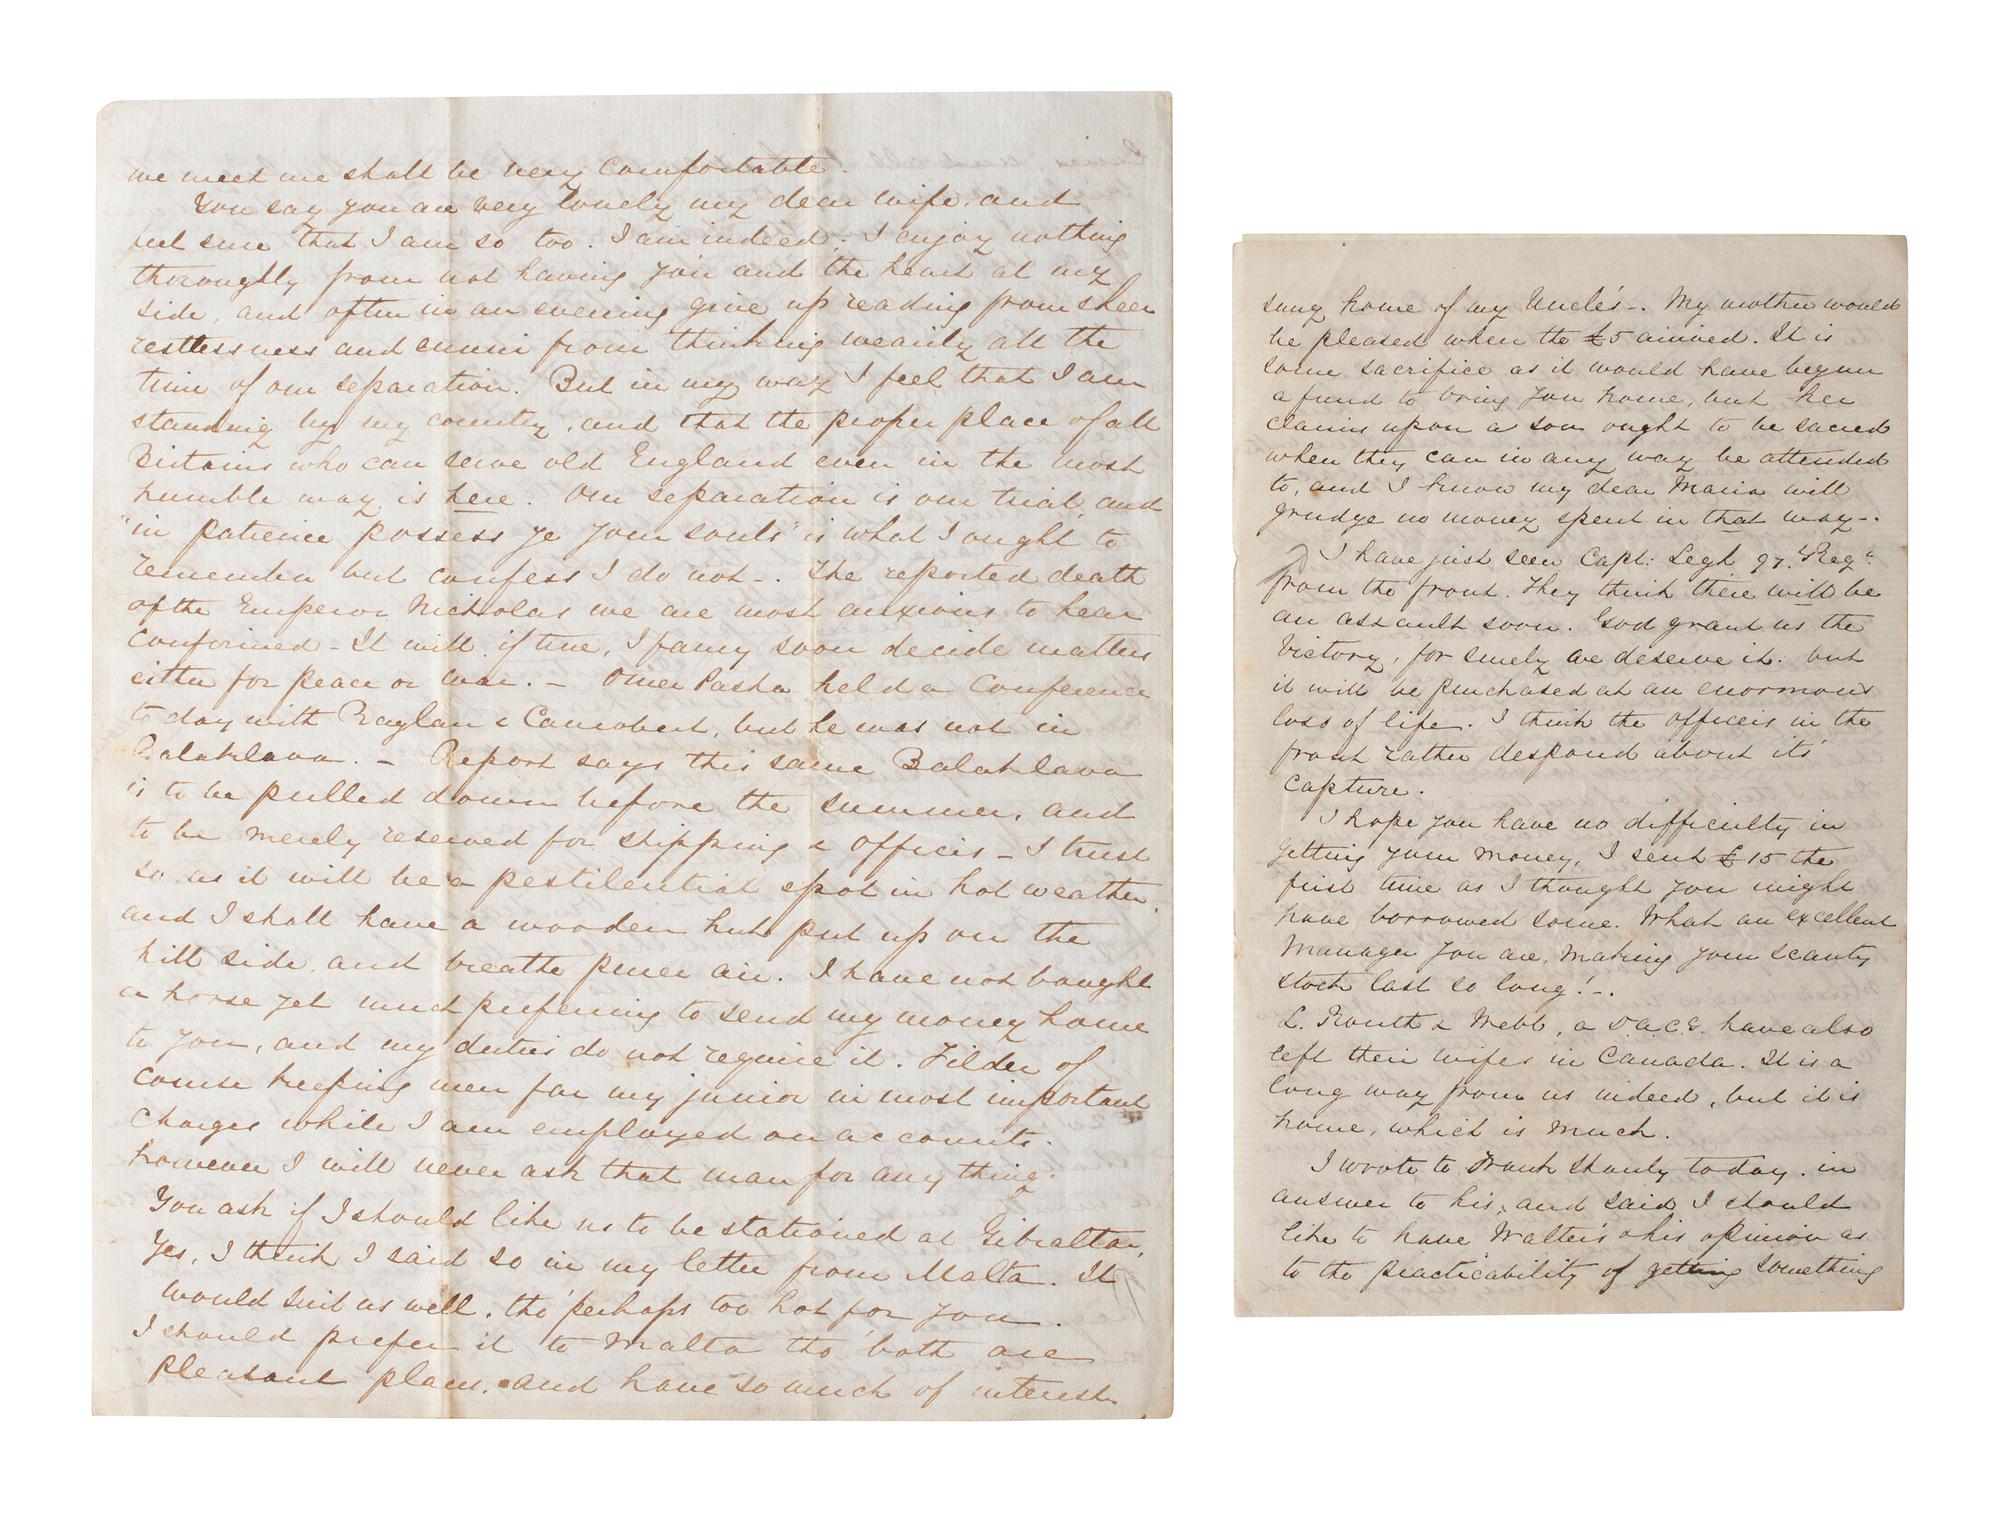 we meet we shall be very comfortable.
You say you are very lonely my dear wife, and
feel sure that I am so too. I am indeed; I enjoy nothing
thoroughly from not having you and the heart at my
side, and often in an evening give up reading from sheer
restlessness and ennui from thinking wearily all the
time of our separation. But in my way I feel that I am
standing by my country, and that the proper place of all
Britains who can serve old England even in the most
humble way is here. Our separation is our trial, and
"in patience possess ye your souls" is what I ought to
remember but confess I do not-. The reported death
of the Emperor Nicholas we are most anxious to hear
confirmed - It will, if true, I fancy soon decide matters
either for peace or war. - Omer Pasha held a Conference
to day with Raglan & Canrobert, but he was not in
Balaklava. - Report says this same Balaklava
is to be pulled down before the summer, and
to be merely reserved for shipping & offices - I trust
so as it will be a pestilential spot in hot weather,
and I shall have a wooden hut put up on the
hill side, and breathe purer air. I have not bought
a horse yet much preferring to send my money home
to you, and my duties do not require it. Filder of
course keeping men far my junior in most important
charges while I am employed on accounts.
however I will never ask that man for any thing.
You ask if I should like us to be stationed at Gibraltar,
Yes, I think I said so in my letter from Malta. It
would suit us well, tho' perhaps too hot for you.
I should prefer it to Malta tho' both are
pleasant places, and have so much of interest.
snug home of my Uncle's-. My mother would
be pleased when the £5 arrived. It is
some sacrifice as it would have begun
a fund to bring you home, but her
claims upon a son ought to be sacred
when they can in any way be attended
to, and I know my dear Maria will
grudge no money spent in that way-.
I have just seen Capt: Legh 97.th Regt.
from the front. They think there will be
an assault soon. God grant us the
Victory, for surely we deserve it. but
it will be purchased at an enormous
loss of life. I think the officers in the
front rather despond about its'
capture.
I hope you have no difficulty in
getting your money, I sent £15 the
first time as I thought you might
have borrowed some. What an excellent
Manager you are, making your scanty
stock last so long!-.
L. Routh & Webb, a D.A.C.G. have also
left their wifes in Canada. It is a
long way from us indeed, but it is
home, which is much.
I wrote to Frank Shanly today, in
answer to his, and said I should
like to have Walter's & his opinion as
to the practicability of getting something